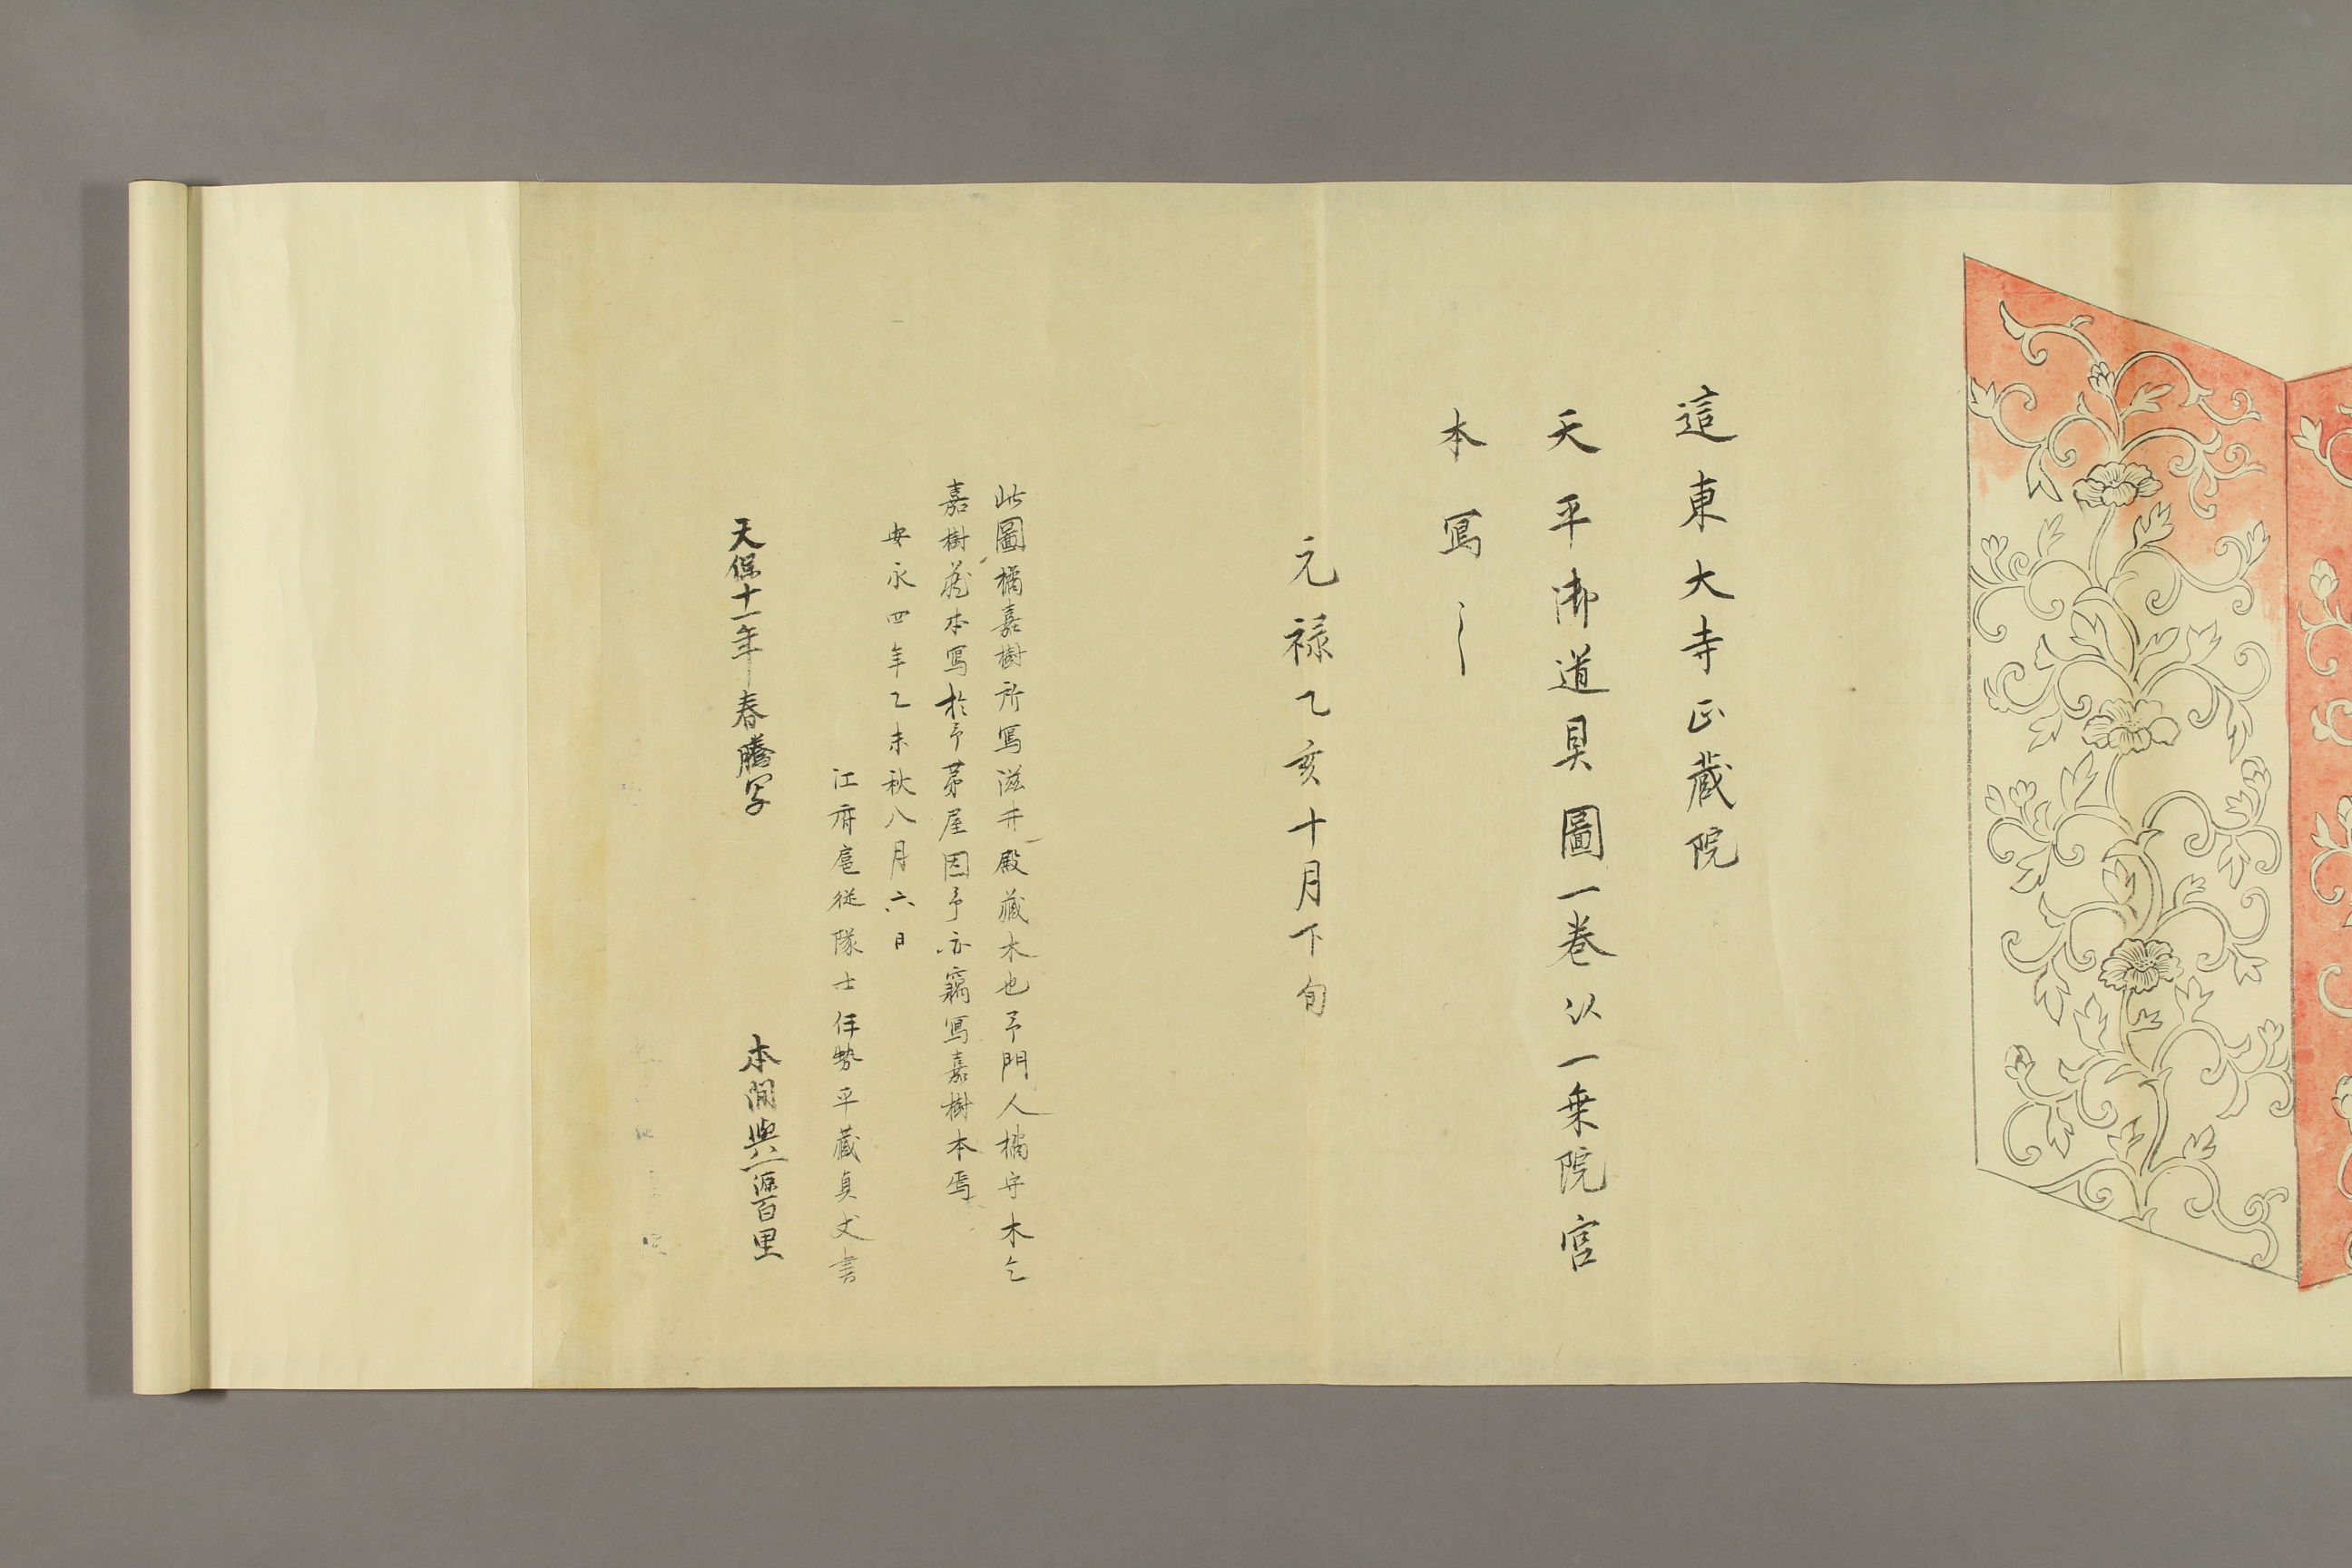 這東大寺正蔵院
天平御道具圖一巻以一乗院宮
本寫之
元禄乙亥十月下旬
此圖橘嘉樹所寫滋井殿藏本也予門人橘守木乞
嘉樹藏本寫於予茅屋因予亦竊寫嘉樹本焉
安永四年乙未秋八月六日
江府扈従隊士伊勢平藏貞丈書
天保十一年春謄写
本間與一源百里